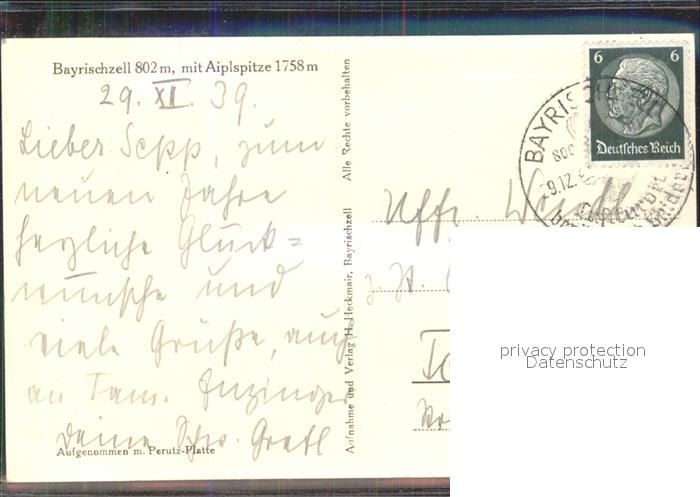 Bayrischzell 802 m, mit Aiplspitze 1758 m
29. XII. 39.
Lieber Sepp, zum
neuen Jahre
herzliche Glück=
wünsche und
viele Grüße, auch
an Fam. Inzinger
Deine Schw. Gretl.
Aufgenommen m. Perutz-Platte
Aufnahme und Verlag H. Heckmair, Bayrischzell
Alle Rechte vorbehalten
6 6
Deutsches Reich
BAYRISCHZELL
800
9.12.
Uffz.
z. Zt.
privacy protection
Datenschutz